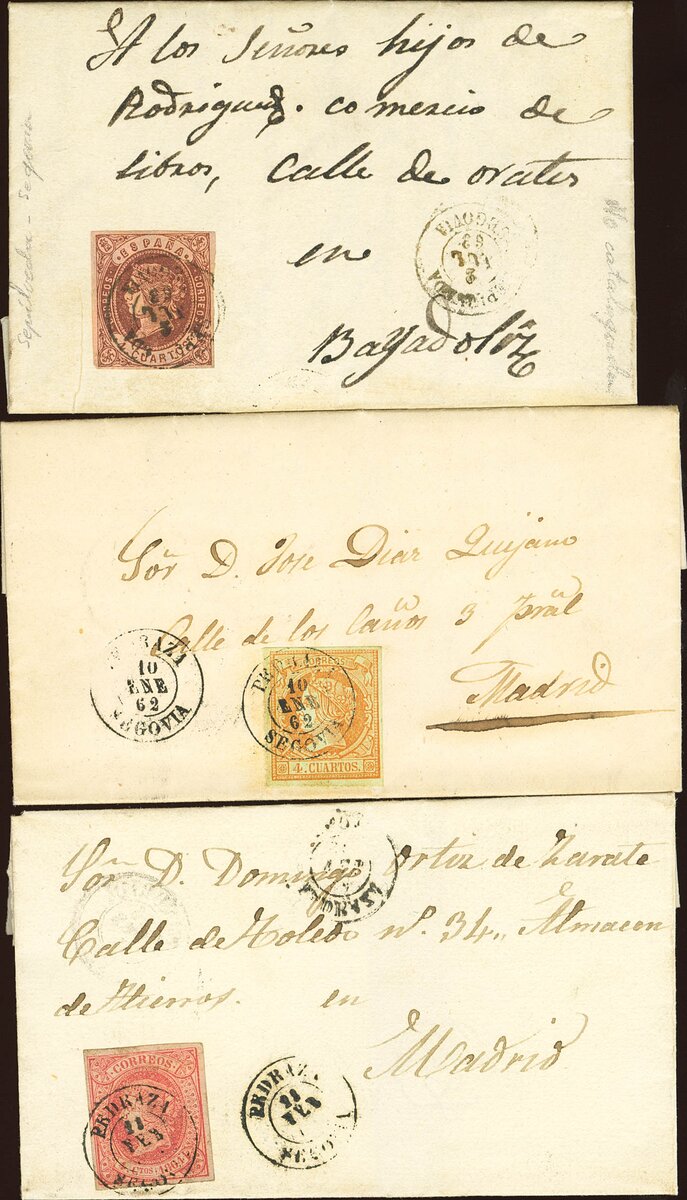 A los Señores hijos de
Rodriguez. comercio de
libros, calle de orates
en
Bayadoliz
Sepúlveda - Segovia
No catalogueda
ESPAÑA
CORREOS
CUARTOS
2
JUL
63
SEGOVIA
2
JUL
63
Sor. D. Jose Diaz Quijano
Calle de los Caños 3 pral
Madrid
PEDRAZA
10
ENE
62
SEGOVIA
CORREOS
10
ENE
62
SEGOVIA
4. CUARTOS.
Sor. D. Domingo Ortiz de Zarate
Calle de Toledo nº. 34,, Almacen
de Hierros. en
Madrid
CORREOS
PEDRAZA
21
FEB
PEDRAZA
21
FEB
SEGOVIA